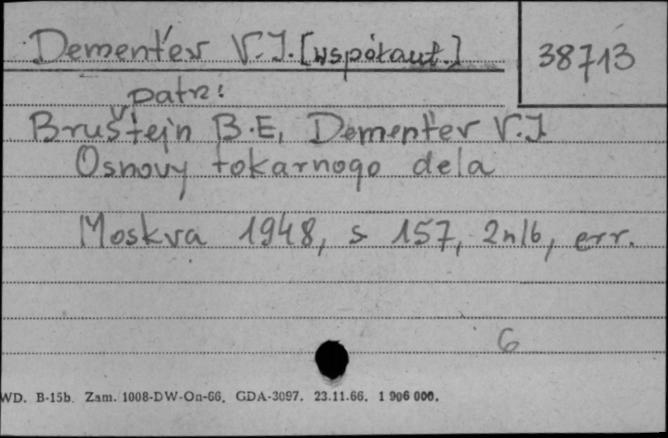 Dement'ev V.I. [współaut.]
38713
patrz:
Bruštejn B.E., Dement'ev V.I.
Osnovy tokarnogo dela
Moskva 1948, s 157, 2nlb, err.
6
WD. B-15b. Zam. 1008-DW-On-66. GDA-3097. 23.11.66. 1 906 000.